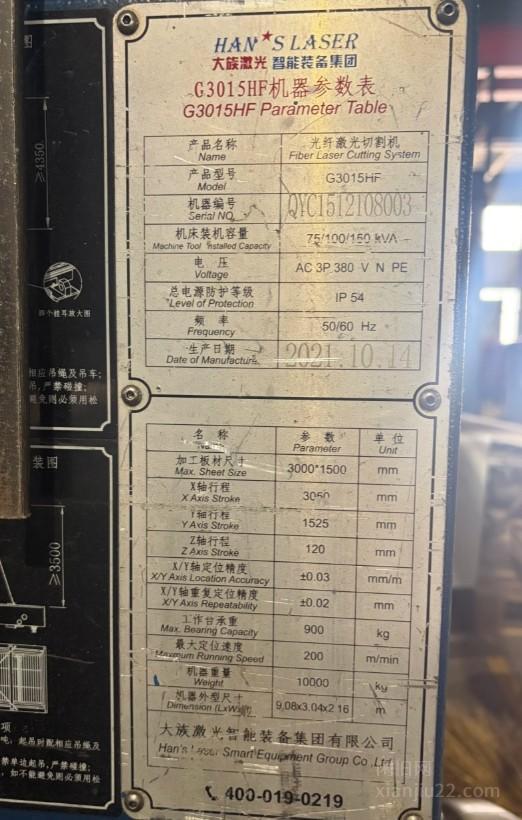 HAN★S LASER
大族激光 智能装备集团
G3015HF机器参数表
G3015HF Parameter Table
产品名称 光纤激光切割机
Name Fiber Laser Cutting System
产品型号 G3015HF
Model
机器编号 QYC1512108003
Serial NO.
机床装机容量 75/100/150 kVA
Machine Tool Installed Capacity
电 压 AC 3P 380 V N PE
Voltage
总电源防护等级 IP 54
Level of Protection
频 率 50/60 Hz
Frequency
生产日期 2021.10.14
Date of Manufacture
名 称 参 数 单 位
Parameter Unit
加工板材尺寸 3000*1500 mm
Max. Sheet Size
X轴行程 3050 mm
X Axis Stroke
Y轴行程 1525 mm
Y Axis Stroke
Z轴行程 120 mm
Z Axis Stroke
X/Y轴定位精度 ±0.03 mm/m
X/Y Axis Location Accuracy
X/Y轴重复定位精度 ±0.02 mm
X/Y Axis Repeatability
工作台承重 900 kg
Max. Bearing Capacity
最大定位速度 200 m/min
Maximum Running Speed
机器重量 10000 kg
Weight
机器外型尺寸 9.08x3.04x2.16 m
Dimension (LxWxH)
大族激光智能装备集团有限公司
Han's Laser Smart Equipment Group Co.,Ltd
400-019-0219
图
≥1350
四个挂耳放大图
相应吊绳及吊车;
吊,严禁碰撞;
避免则必须用松
装图
≥3500
项
吨, 起吊时配相应吊绳及
禁单边起吊,严禁碰撞,
,如不能避免则必须用松
闲旧网
xianjiu22.com